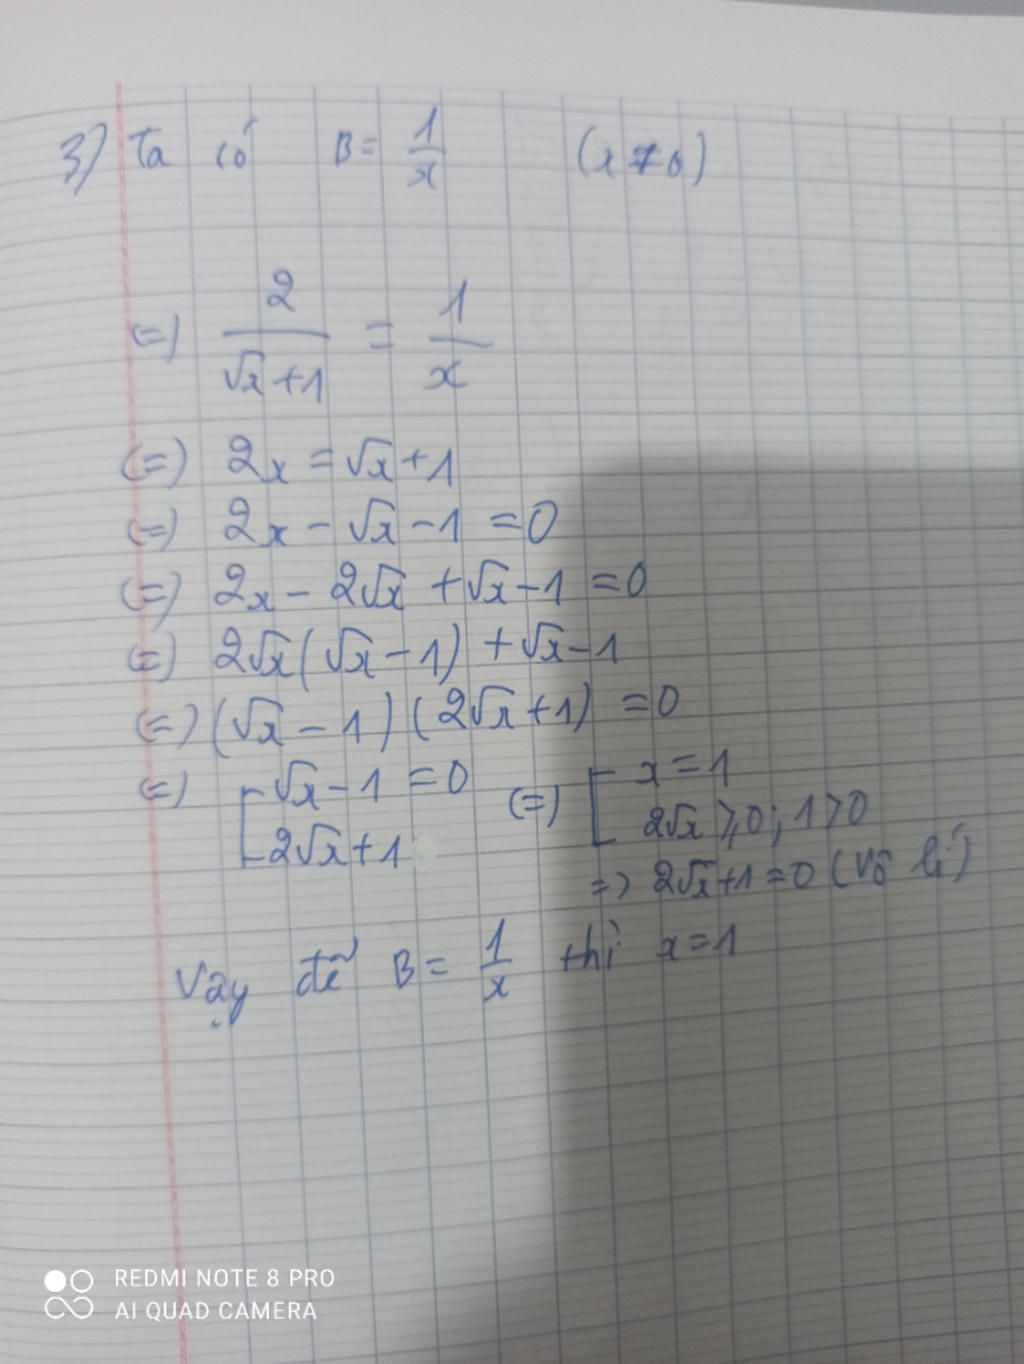 3) Ta có B = 1/x (x ≠ 0)
(=) 2/(√x+1) = 1/x
(=) 2x = √x+1
(=) 2x - √x - 1 = 0
(=) 2x - 2√x + √x - 1 = 0
(=) 2√x(√x - 1) + √x - 1
(=) (√x - 1)(2√x+1) = 0
(=) [ √x - 1 = 0 (=) [ x = 1
2√x+1 2√x ⩾ 0; 1 > 0
=> 2√x+1 = 0 (vô lí)
Vậy để B = 1/x thì x = 1
REDMI NOTE 8 PRO
AI QUAD CAMERA